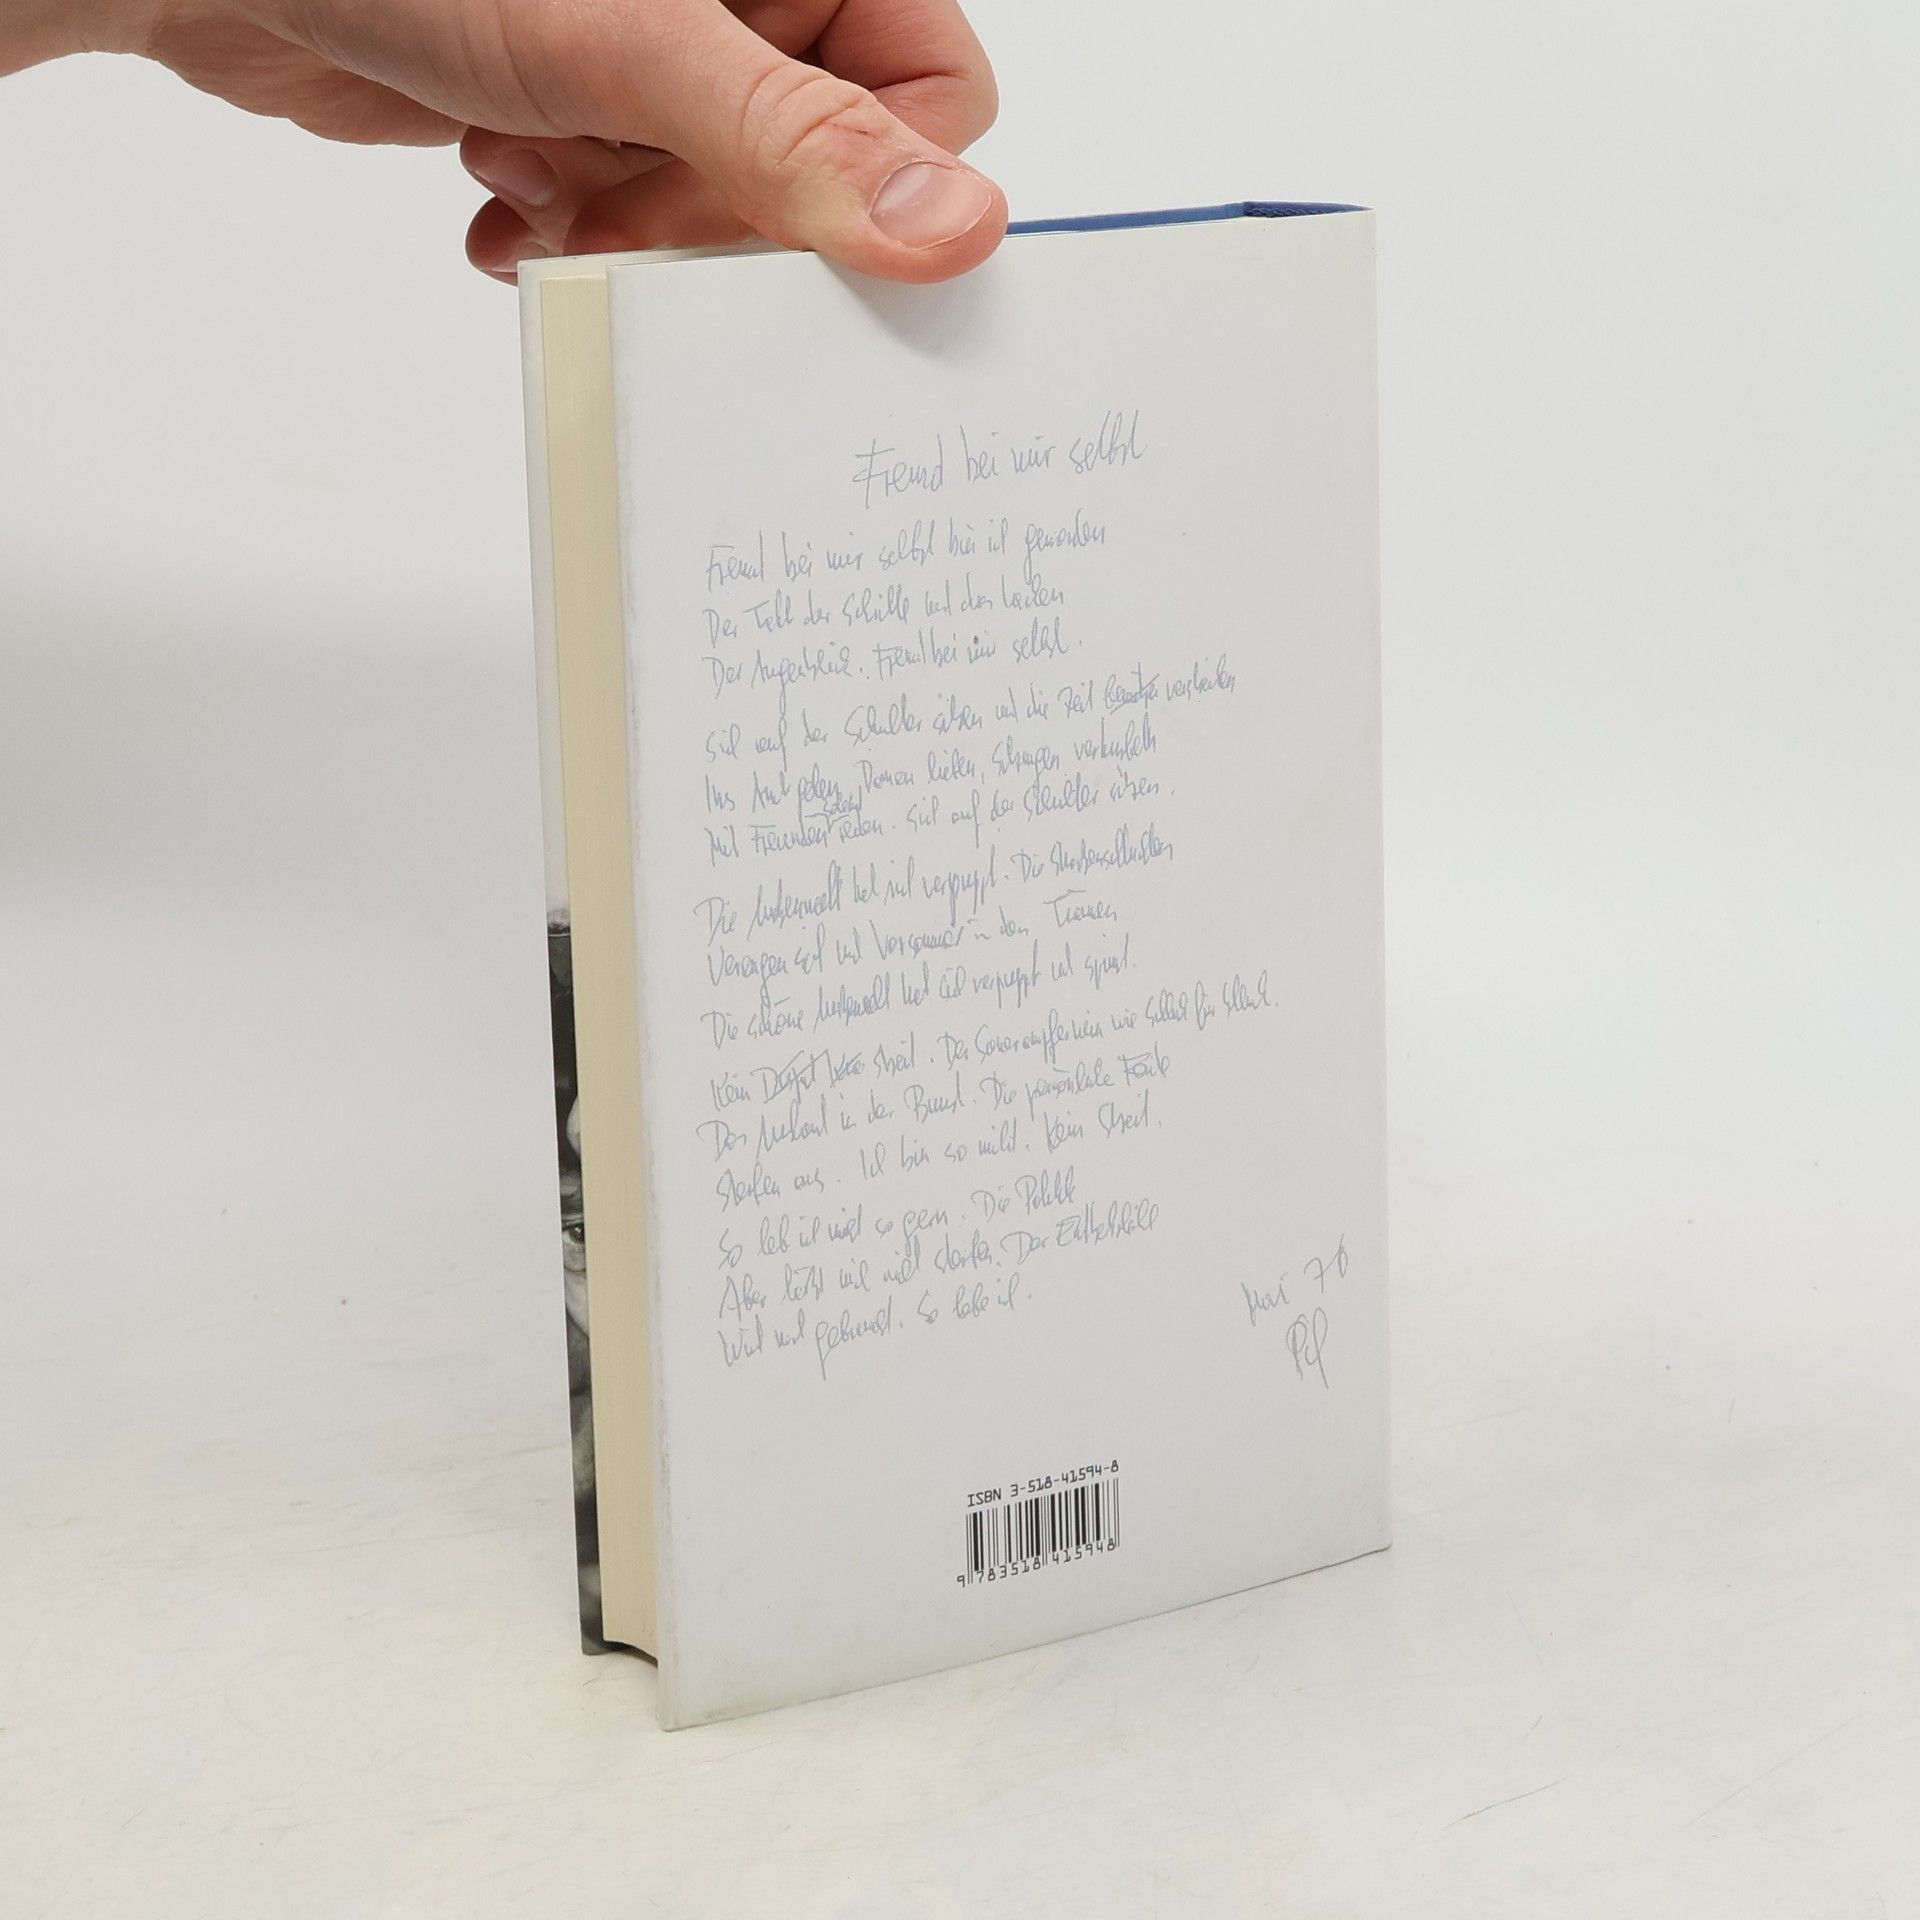 Fremd bei mir selbst
Fremd bei mir selbst bin ich geworden
Der Takt der Schritte und das Lachen
Der Augenblick. Fremd bei mir selbst.
Sich auf der Schulter sitzen und die Zeit vertreiben
Ins Amt gehen, Damen lieben, Stangen
Mit Freunden reden. Sich auf der Schulter sitzen.
Die Außenwelt hat sich verpuppt. Die Straßenschluchten
Verengen sich und in den Träumen
Die schöne Außenwelt hat sich verpuppt und spinnt.
Kein Streit. Der Sauerampferwein wie Schluck für Schluck.
Das in der Brust. Die persönliche Farbe
Sterben aus. Ich bin so mild. Kein Streit.
So leb ich nicht so gern. Die Politik
Aber läßt mich nicht sterben. Der
Wird noch gebraucht. So lebe ich.
Mai 76
ISBN 3-518-41594-8
9 783518 415948